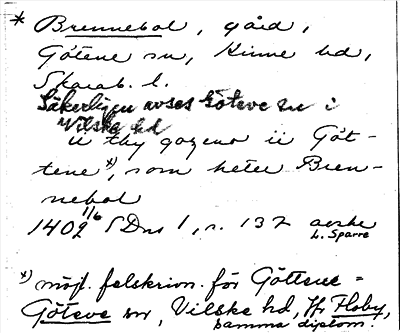 * Brennebol, gård,
Götene sn, Kinne hd,
Skarab. l.
Säkerligen avses Göteve sn i
Vilske hd
ii thy gozeno ii Göt-
tene *), som heter Bren-
nebol
1402 1/6 SDns 1, s. 137 avskr
L. Sparre
*) möjl. felskrivn. för Göttene =
Göteve sn, Vilske hd, jfr Floby,
samma diplom.